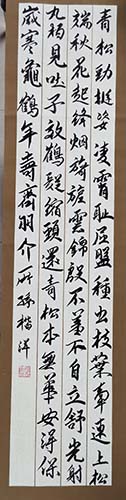 青松勁挺姿凌霄恥屈盤種出枝葉牽連上松
端秋花起絳烟旖旎雲錦殷不羞不自立舒光射
丸柏見吐子效鶴髮縮頸還青松本無華安得保
歲寒龜鶴年壽齊羽介所 楷洋